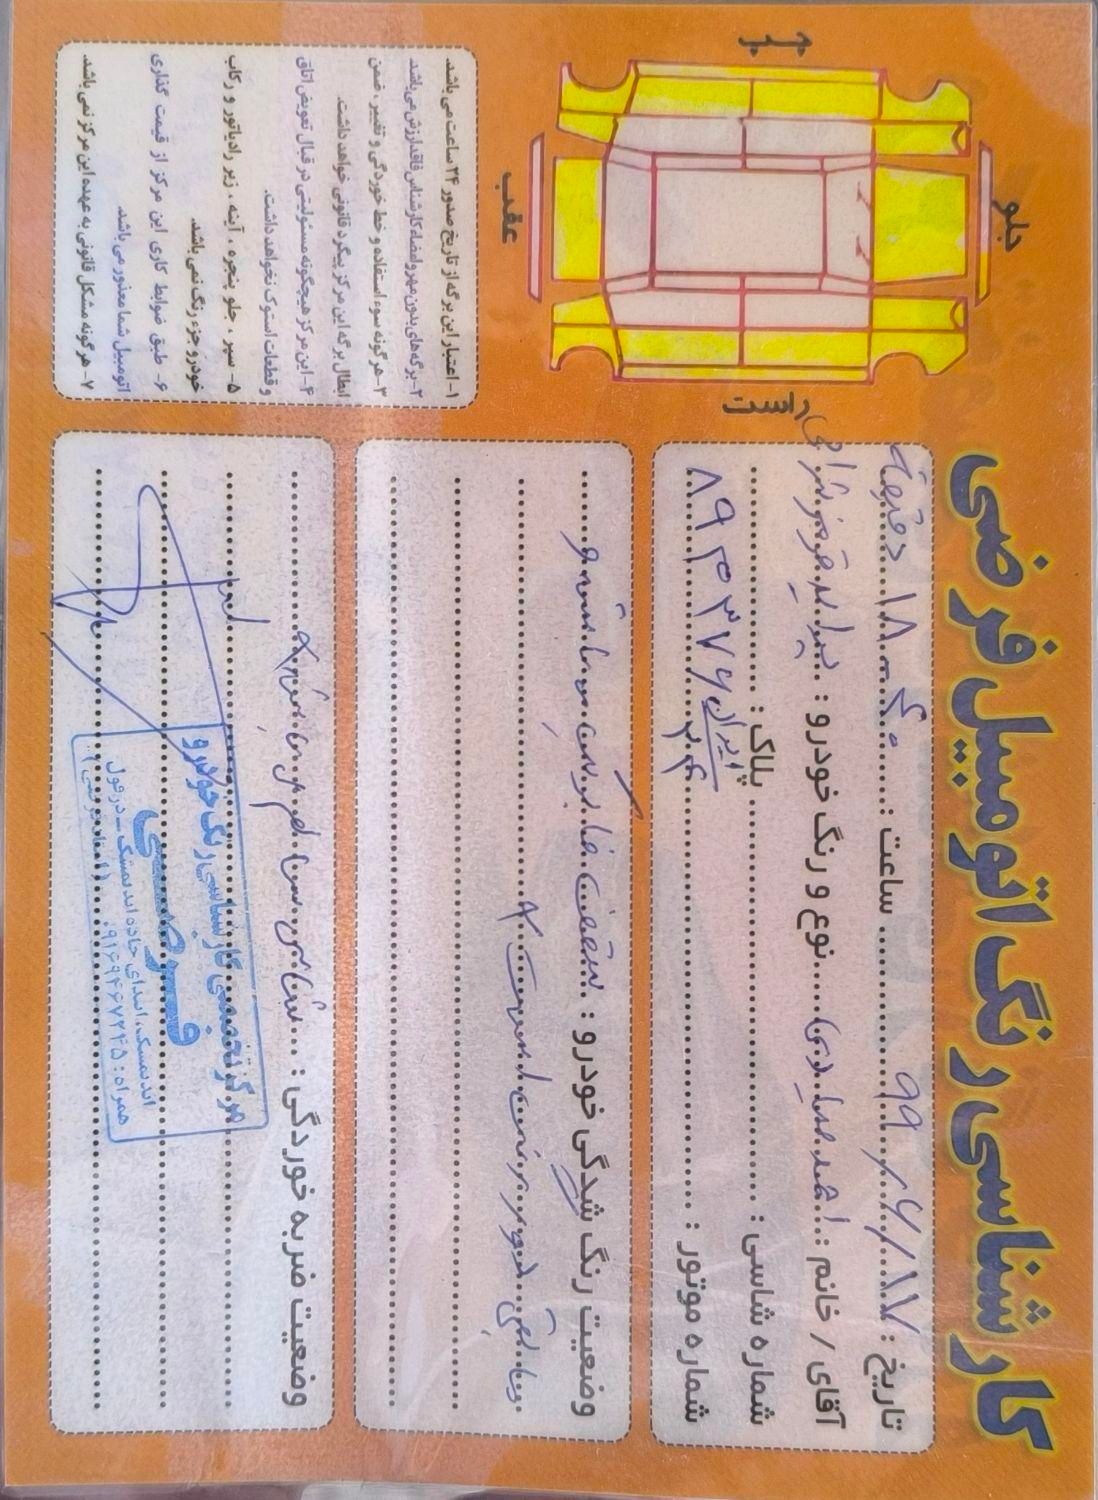 کارشناسی رنگ اتومبیل فرضی
تاریخ : ۹۹/۷/۱۷ ساعت : ۱۸:۴۰ دقیقه
آقای / خانم : نوع و رنگ خودرو :
شماره شاسی : پلاک :
شماره موتور : ایران
وضعیت رنگ شدگی خودرو : سقف فابریک می باشد و
مابقی دور رنگ است
وضعیت ضربه خوردگی : شاسی سالم می باشد
مرکز تخصصی کارشناسی رنگ خودرو
فرضی
اندیمشک، ابتدای جاده اندیمشک - دزفول
همراه: ۰۹۱۶۹۴۶۷۲۴۵
چپ
جلو
عقب
راست
۱- اعتبار این برگه از تاریخ صدور ۲۴ ساعت می باشد.
۲- برگه های بدون مهر و امضاء کارشناس فاقد ارزش می باشد
۳- هرگونه سوء استفاده و خط خوردگی و تغییر ، ضمن
ابطال برگه این مرکز پیگرد قانونی خواهد داشت.
۴- این مرکز هیچگونه مسئولیتی در قبال تعویض اتاق
و قطعات استوک نخواهد داشت.
۵- سپر ، جلو پنجره ، آینه ، زیر رادیاتور و رکاب
خودرو جزء رنگ نمی باشد.
۶- طبق ضوابط کاری این مرکز از قیمت گذاری
اتومبیل شما معذور می باشد.
۷- هرگونه مشکل قانونی به عهده این مرکز نمی باشد